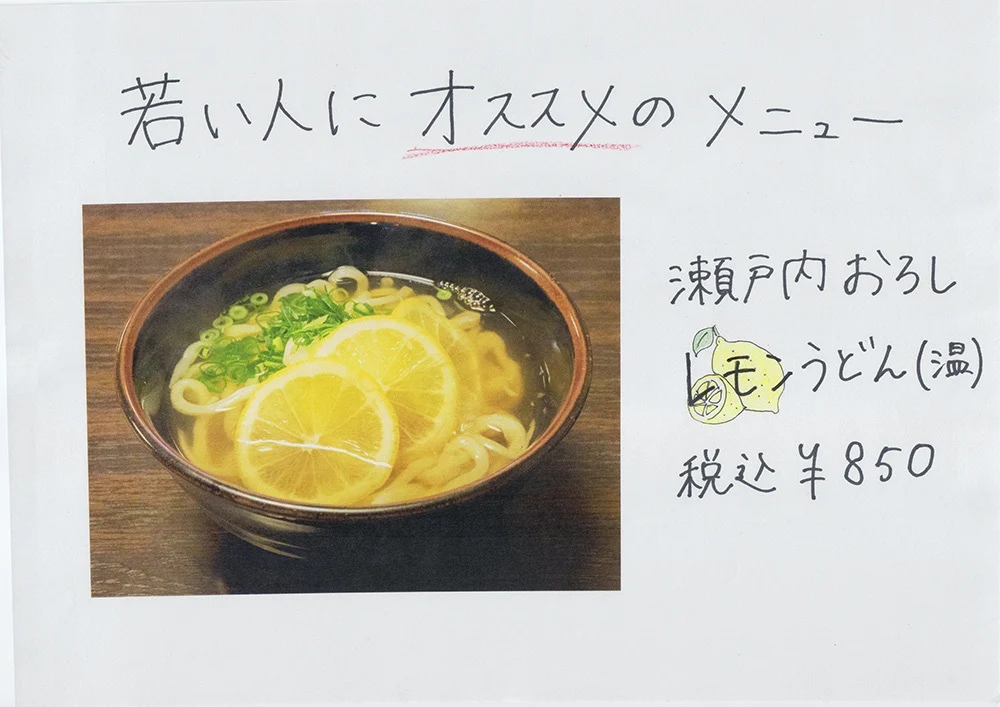 若い人にオススメのメニュー
瀬戸内おろし
レモンうどん(温)
税込¥850